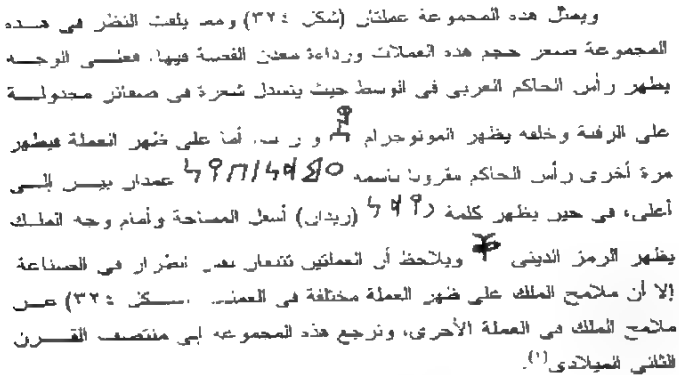 ويمثل هذه المجموعة عملتان (شكل ٣٢٤) ومما يلفت النظر فى هذه
المجموعة صغر حجم هذه العملات ورداءة معدن الفضة فيها. فعلى الوجه
يظهر رأس الحاكم العربى فى الوسط حيث ينسدل شعرة فى ضفائر مجدولة
على الرقبة وخلفه يظهر المونوجرام و ر س. أما على ظهر العملة فيظهر
مرة أخرى رأس الحاكم مقرونا باسمه 𐩲𐩣𐩵𐩬𐩽𐩨𐩺𐩬 عمدان بين إلى
أعلى، فى حين يظهر كلمة 𐩧𐩺𐩵𐩬 (ريدان) أسفل المساحة وأمام وجه الملك
يظهر الرمز الدينى ويلاحظ أن العملتين تتبعان نفس الطراز فى الصناعة
إلا أن ملامح الملك على ظهر العملة مختلفة فى العملة شكل ٣٢٤) عن
ملامح الملك فى العملة الأخرى، وترجع هذه المجموعه إلى منتصف القرن
الثانى الميلادى(١).